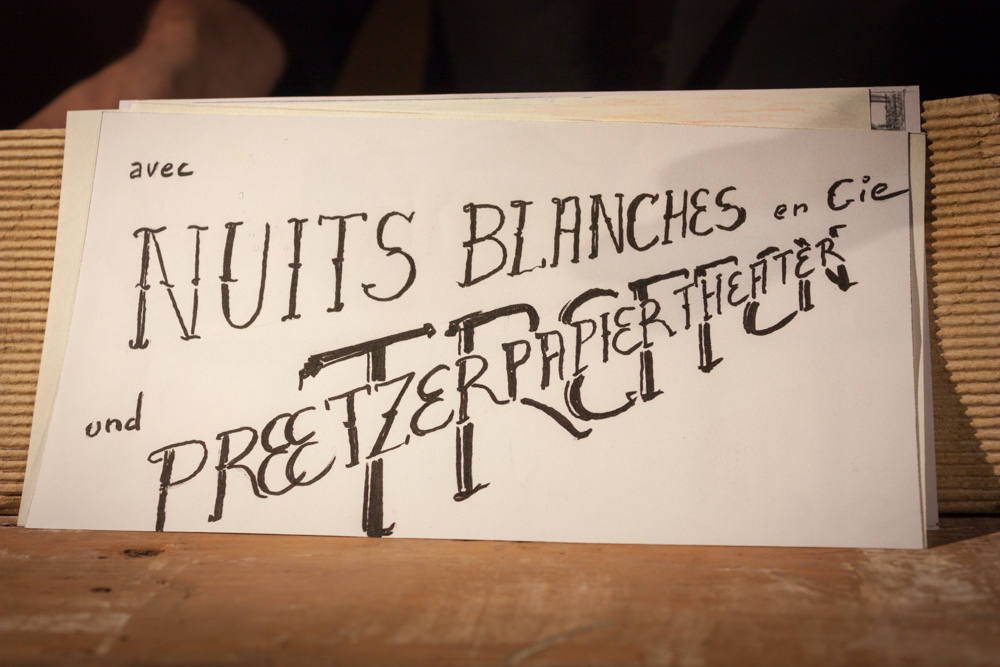 avec
NUITS BLANCHES en Cie
und
PREETZER PAPIERTHEATER
TREFFEN